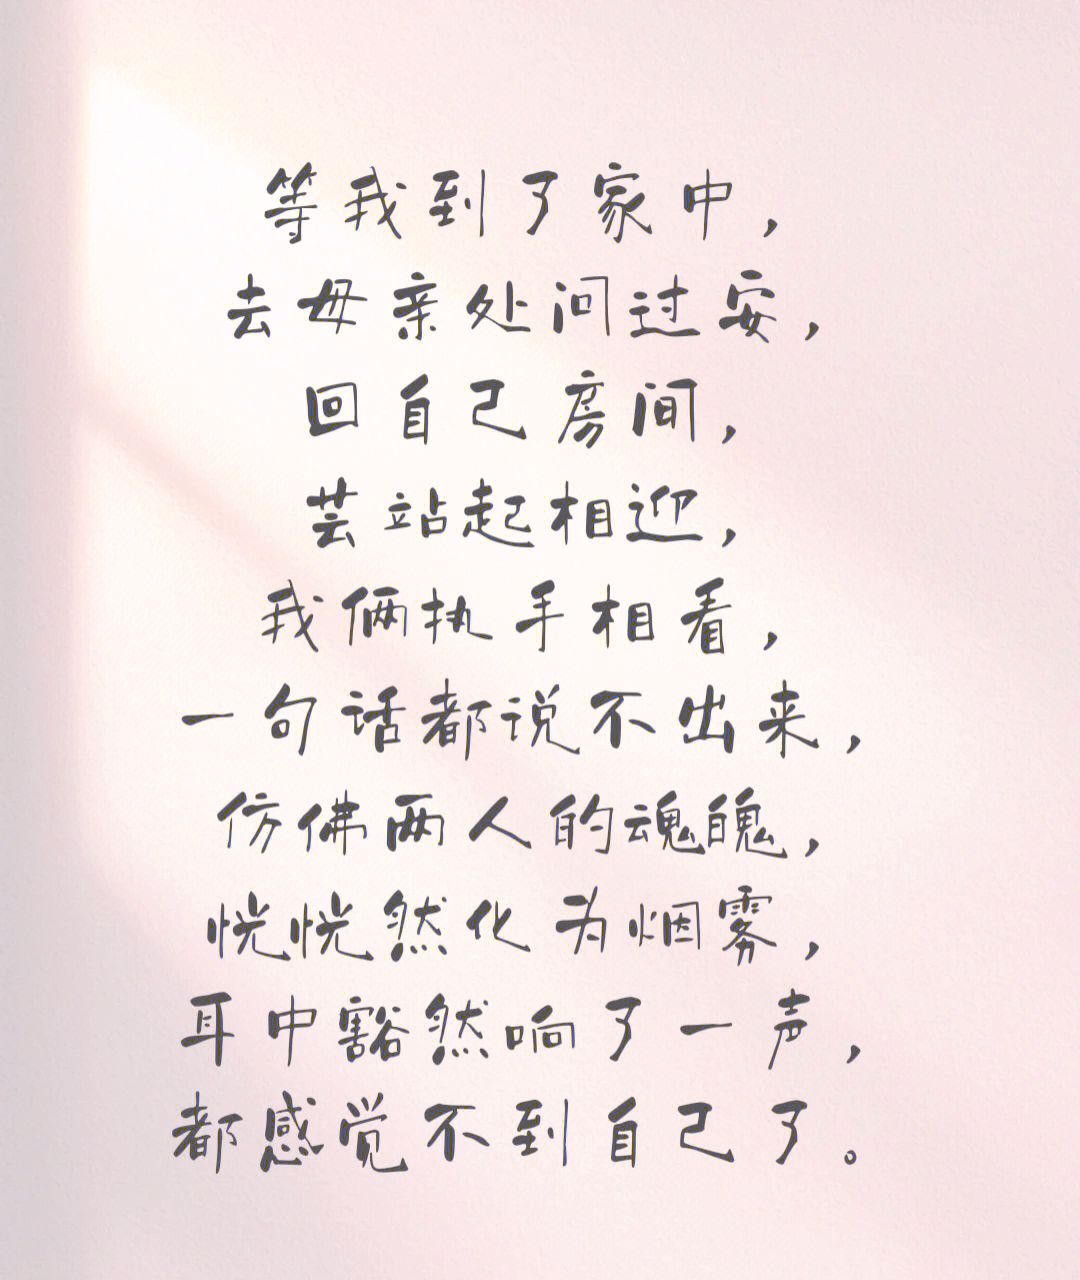 等我到了家中，
去母亲处问过安，
回自己房间，
芸站起相迎，
我俩执手相看，
一句话都说不出来，
仿佛两人的魂魄，
恍恍然化为烟雾，
耳中豁然响了一声，
都感觉不到自己了。